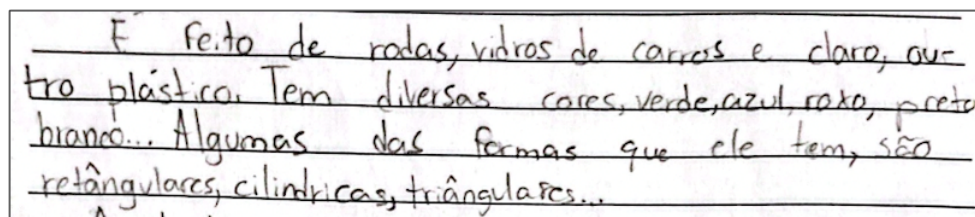 É feito de rodas, vidros de carros e claro, ou-
tro plástico. Tem diversas cores, verde, azul, roxo, preto
branco... Algumas das formas que ele tem, são
retângulares, cilindricas, triângulares...